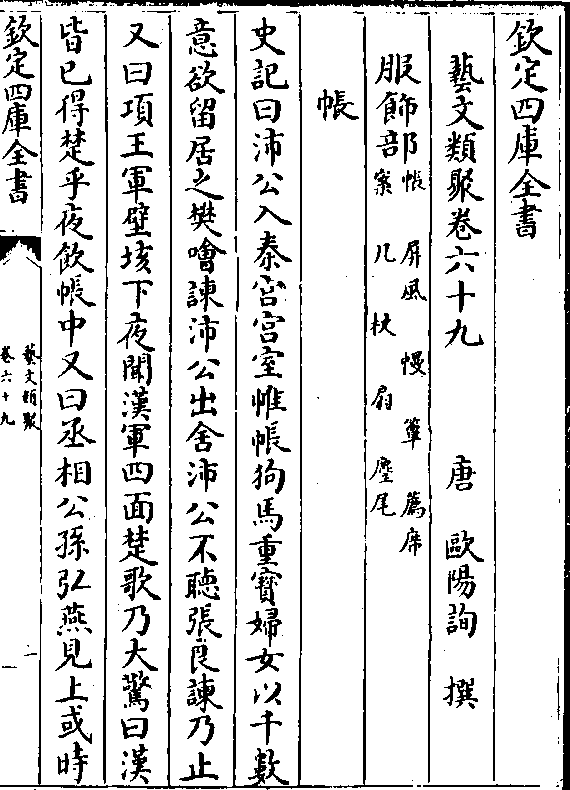 欽定四庫全書
藝文類聚卷六十九
唐 歐陽詢 撰
服飾部 帳 屏風 幔 簟 薦席
案 几 杖 扇 麈尾
帳
史記曰沛公入秦宮宮室帷帳狗馬重寳婦女以千數
意欲留居之樊噲諫沛公出舍沛公不聽張良諫乃止
又曰項王軍壁垓下夜聞漢軍四面楚歌乃大驚曰漢
皆已得楚乎夜飲帳中又曰丞相公孫弘燕見上或時
欽定四庫全書
藝文類聚
卷六十九
一